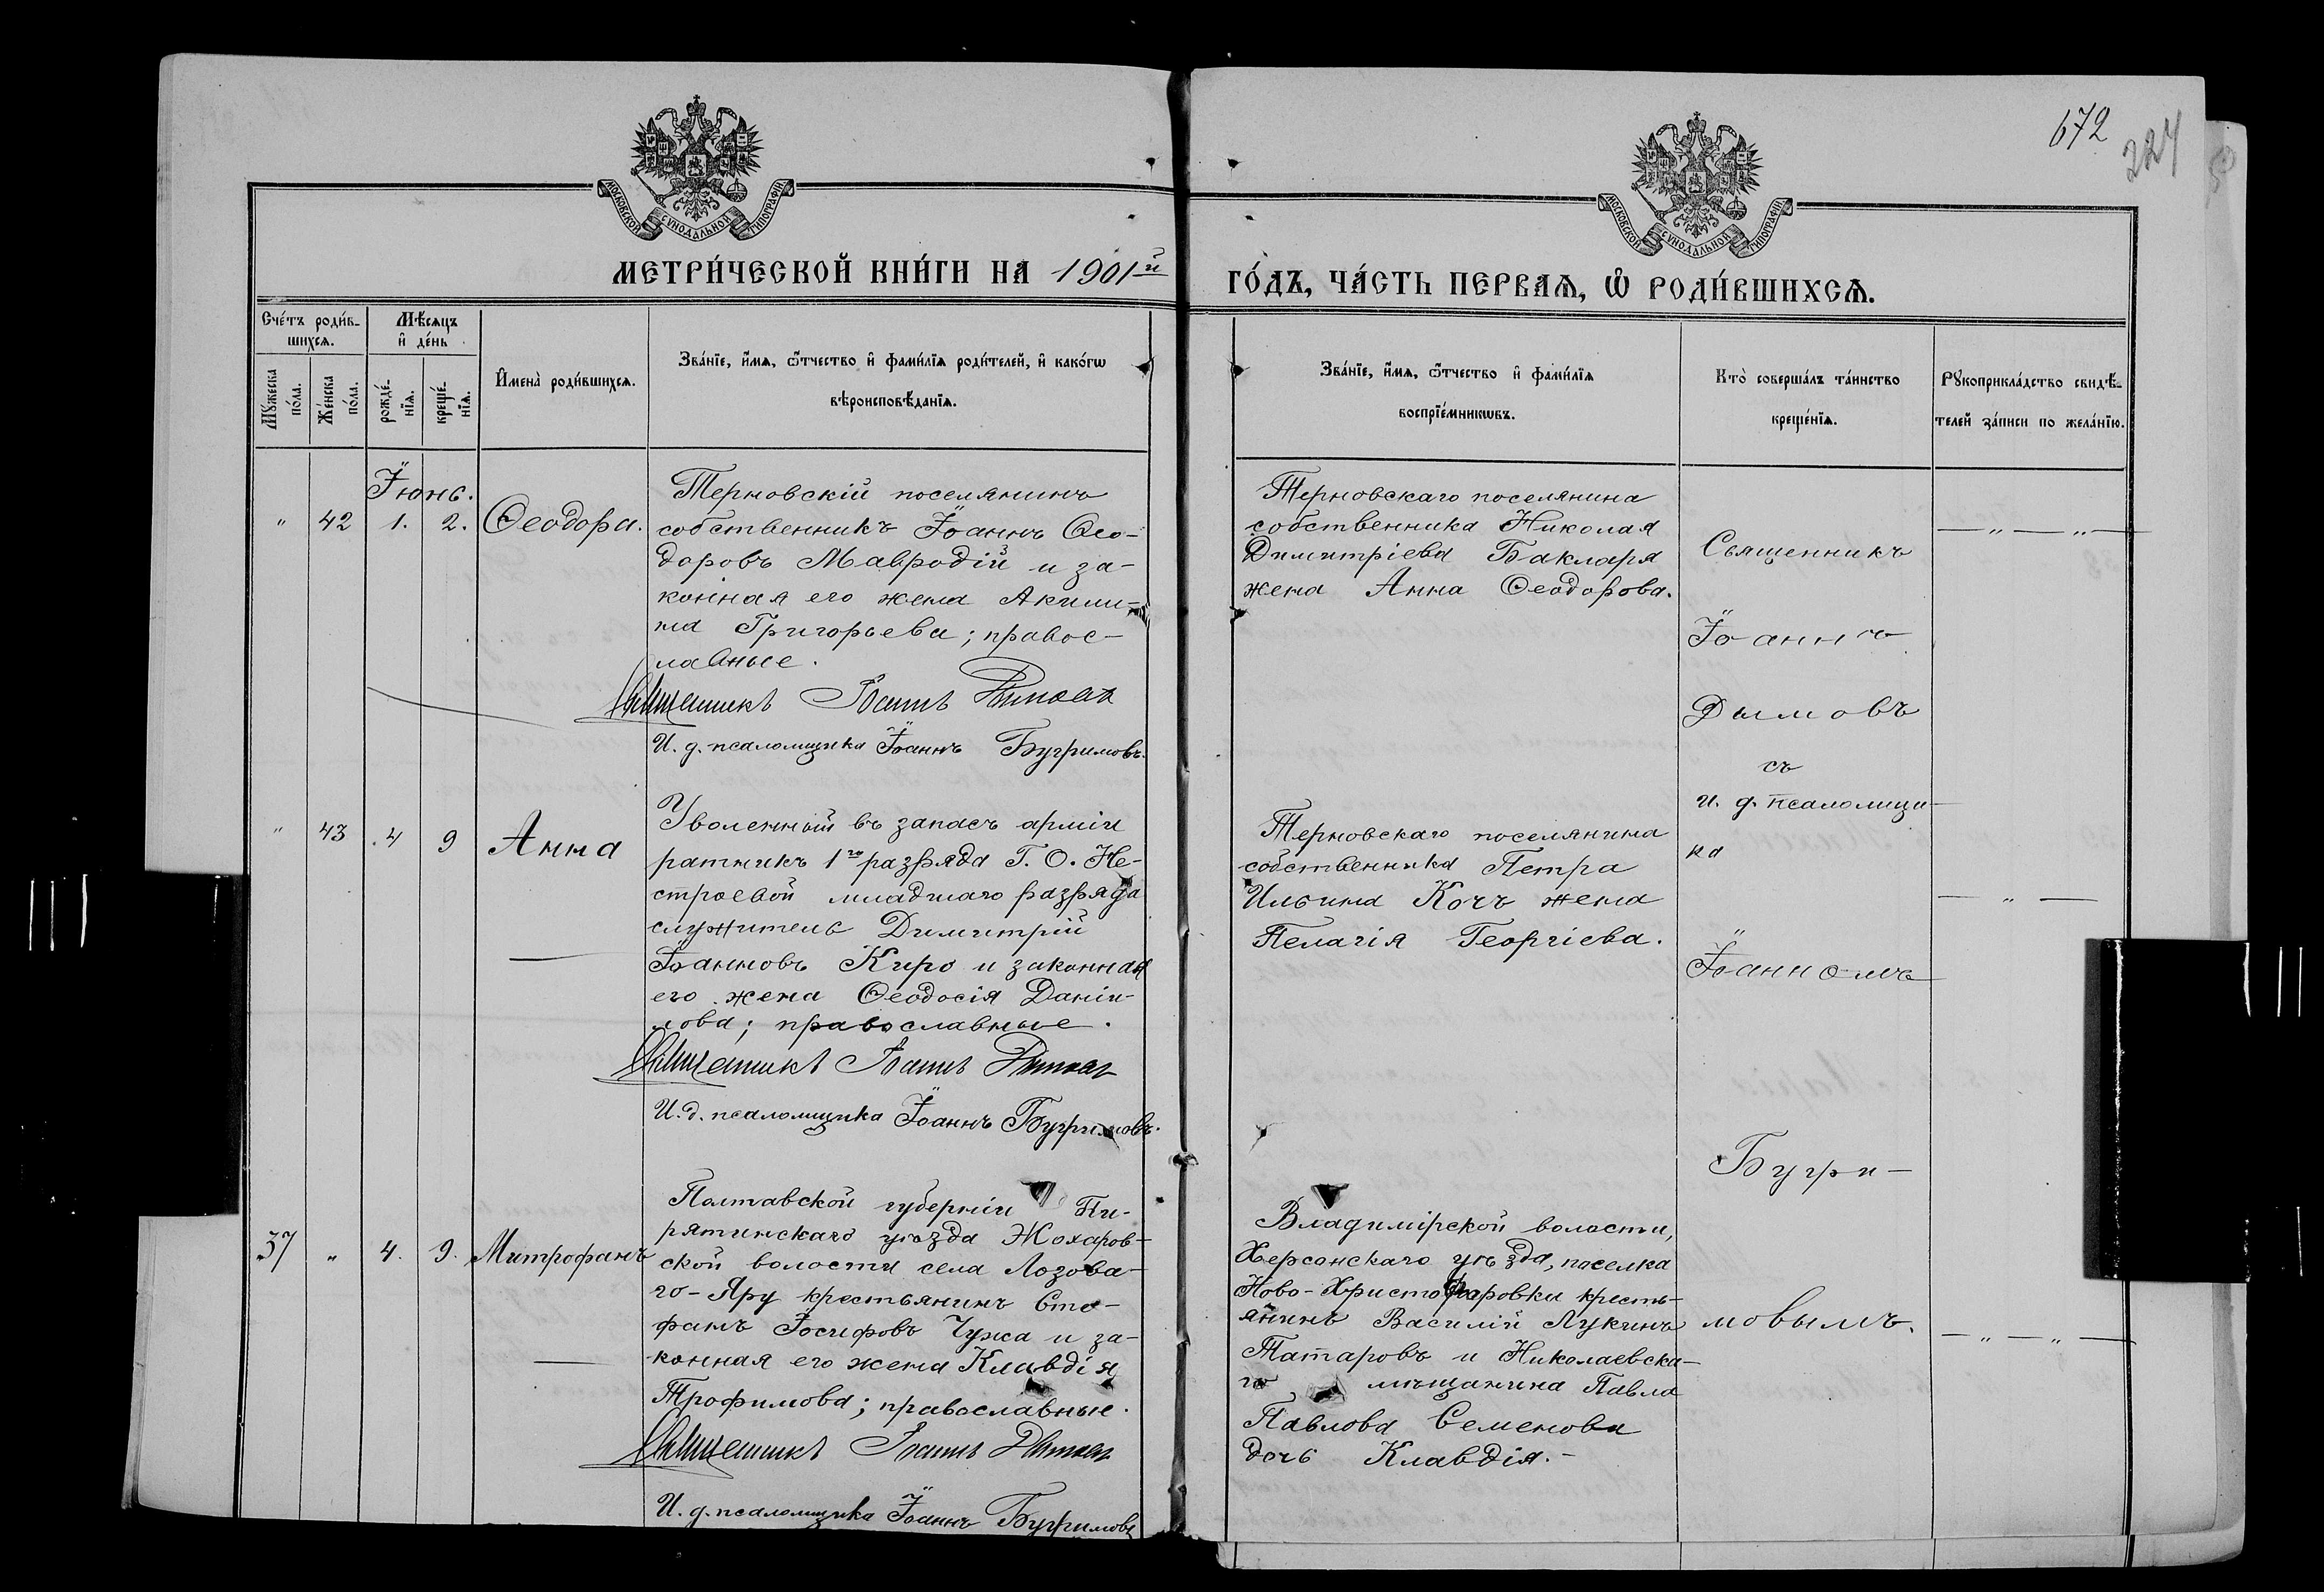 672
224
МОСКОВСКОЙ СѴНОДАЛЬНОЙ ТИПОГРАФІИ
МОСКОВСКОЙ СѴНОДАЛЬНОЙ ТИПОГРАФІИ
МЕТРИ́ЧЕСКОЙ КНИ́ГИ НА 1901й
ГО́ДЪ, ЧА́СТЬ ПЕРВАѦ, Ѡ҆ РОДИ́ВШИХСѦ.
Сче́тъ роди́в-
шихсѧ.
Мꙋ́жеска
по́ла.
Же́нска
по́ла.
Мѣ́сѧцъ
и҆ де́нь
рожде́-
нїѧ.
креще́-
нїѧ.
И҆мена̀ роди́вшихсѧ.
Зва́нїе, и҆́мѧ, ѻ҆́тчество и҆ фами́лїѧ роди́телей, и҆ како́гѡ
вѣроисповѣ́данїѧ.
Зва́нїе, и҆́мѧ, ѻ҆́тчество и҆ фами́лїѧ
воспрїе́мникѡвъ.
Кто̀ соверша́лъ та́инство
креще́нїѧ.
Рꙋкоприкла́дство свидѣ́-
телей за́писи по жела́нїю.
Іюнь.
" 42 1. 2. Ѳеодора.
Терновскій поселянинъ
собственникъ Іоаннъ Ѳео-
доровъ Мавродій и за-
конная его жена Акили-
на Григорьева; правос-
лавные.
Священникъ Іоаннъ Дымовъ
И. д. псаломщика Іоаннъ Бугримовъ.
Терновскаго поселянина
собственника Николая
Димитріева Бакларя
жена Анна Ѳеодорова.
Священникъ
Іоаннъ
Дымовъ
съ
и. д. псаломщи-
ка
Іоанномъ
Бугри-
мовымъ.
— " — " —
" 43 4 9 Анна
Уволенный въ запасъ арміи
ратникъ 1го разряда Г. О. Не-
строевой младшаго разряда
служитель Димитрій
Іоанновъ Киро и законная
его жена Ѳеодосія Даніи-
лова; православные.
Священникъ Іоаннъ Дымовъ
И. д. псаломщика Іоаннъ Бугримовъ.
Терновскаго поселянина
собственника Петра
Ильина Кочъ жена
Пелагія Георгіева.
— " —
37 " 4. 9. Митрофанъ
Полтавской губерніи Пи-
рятинскаго уѣзда Жохаров-
ской волости села Лозова-
го-Яру крестьянинъ Сте-
фанъ Іосифовъ Чужа и за-
конная его жена Клавдія
Трофимова; православные.
Священникъ Іоаннъ Дымовъ
И. д. псаломщика Іоаннъ Бугримовъ
Владимірской волости,
Херсонскаго уѣзда, поселка
Ново-Христофоровки кресть-
янинъ Василій Лукинъ
Татаровъ и Николаевска-
го мѣщанина Павла
Павлова Семенова
дочь Клавдія.-
— " — " —